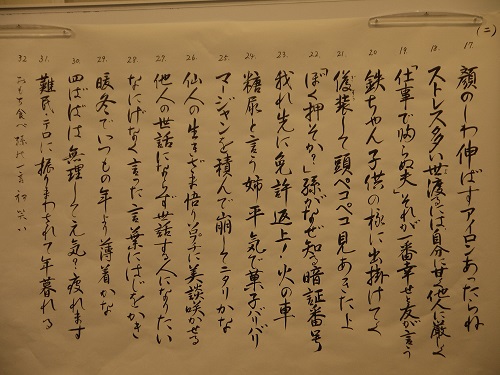 (二)
17. 顔のしわ伸ばすアイロンあったらね
18. ストレス多い世渡るには自分に甘く他人に厳しく
19. 「仕事で帰らぬ夫」それが一番幸せと友が言う
20. 鉄ちゃん子供の様に出掛けてく
21. 仮装して頭ペコペコ見あきた上
22. 「ぼく押そか?」孫がなぜ知る暗証番号
23. 我れ先に免許返上!火の車
24. 糖尿と言う姉平気で菓子バリバリ
25. マージャンを積んで崩してニタリかな
26. 仙人の生きざま悟り草子に美談咲かせる
27. 他人の世話にならず世話する人になりたい
28. なにげなく言った言葉にはじをかき
29. 暖冬でいつもの年より薄着かな
30. 四ばばは無理して元気で疲れます
31. 難民・テロに振りまわされて年暮れる
32. おもち食べ孫の一言初笑い